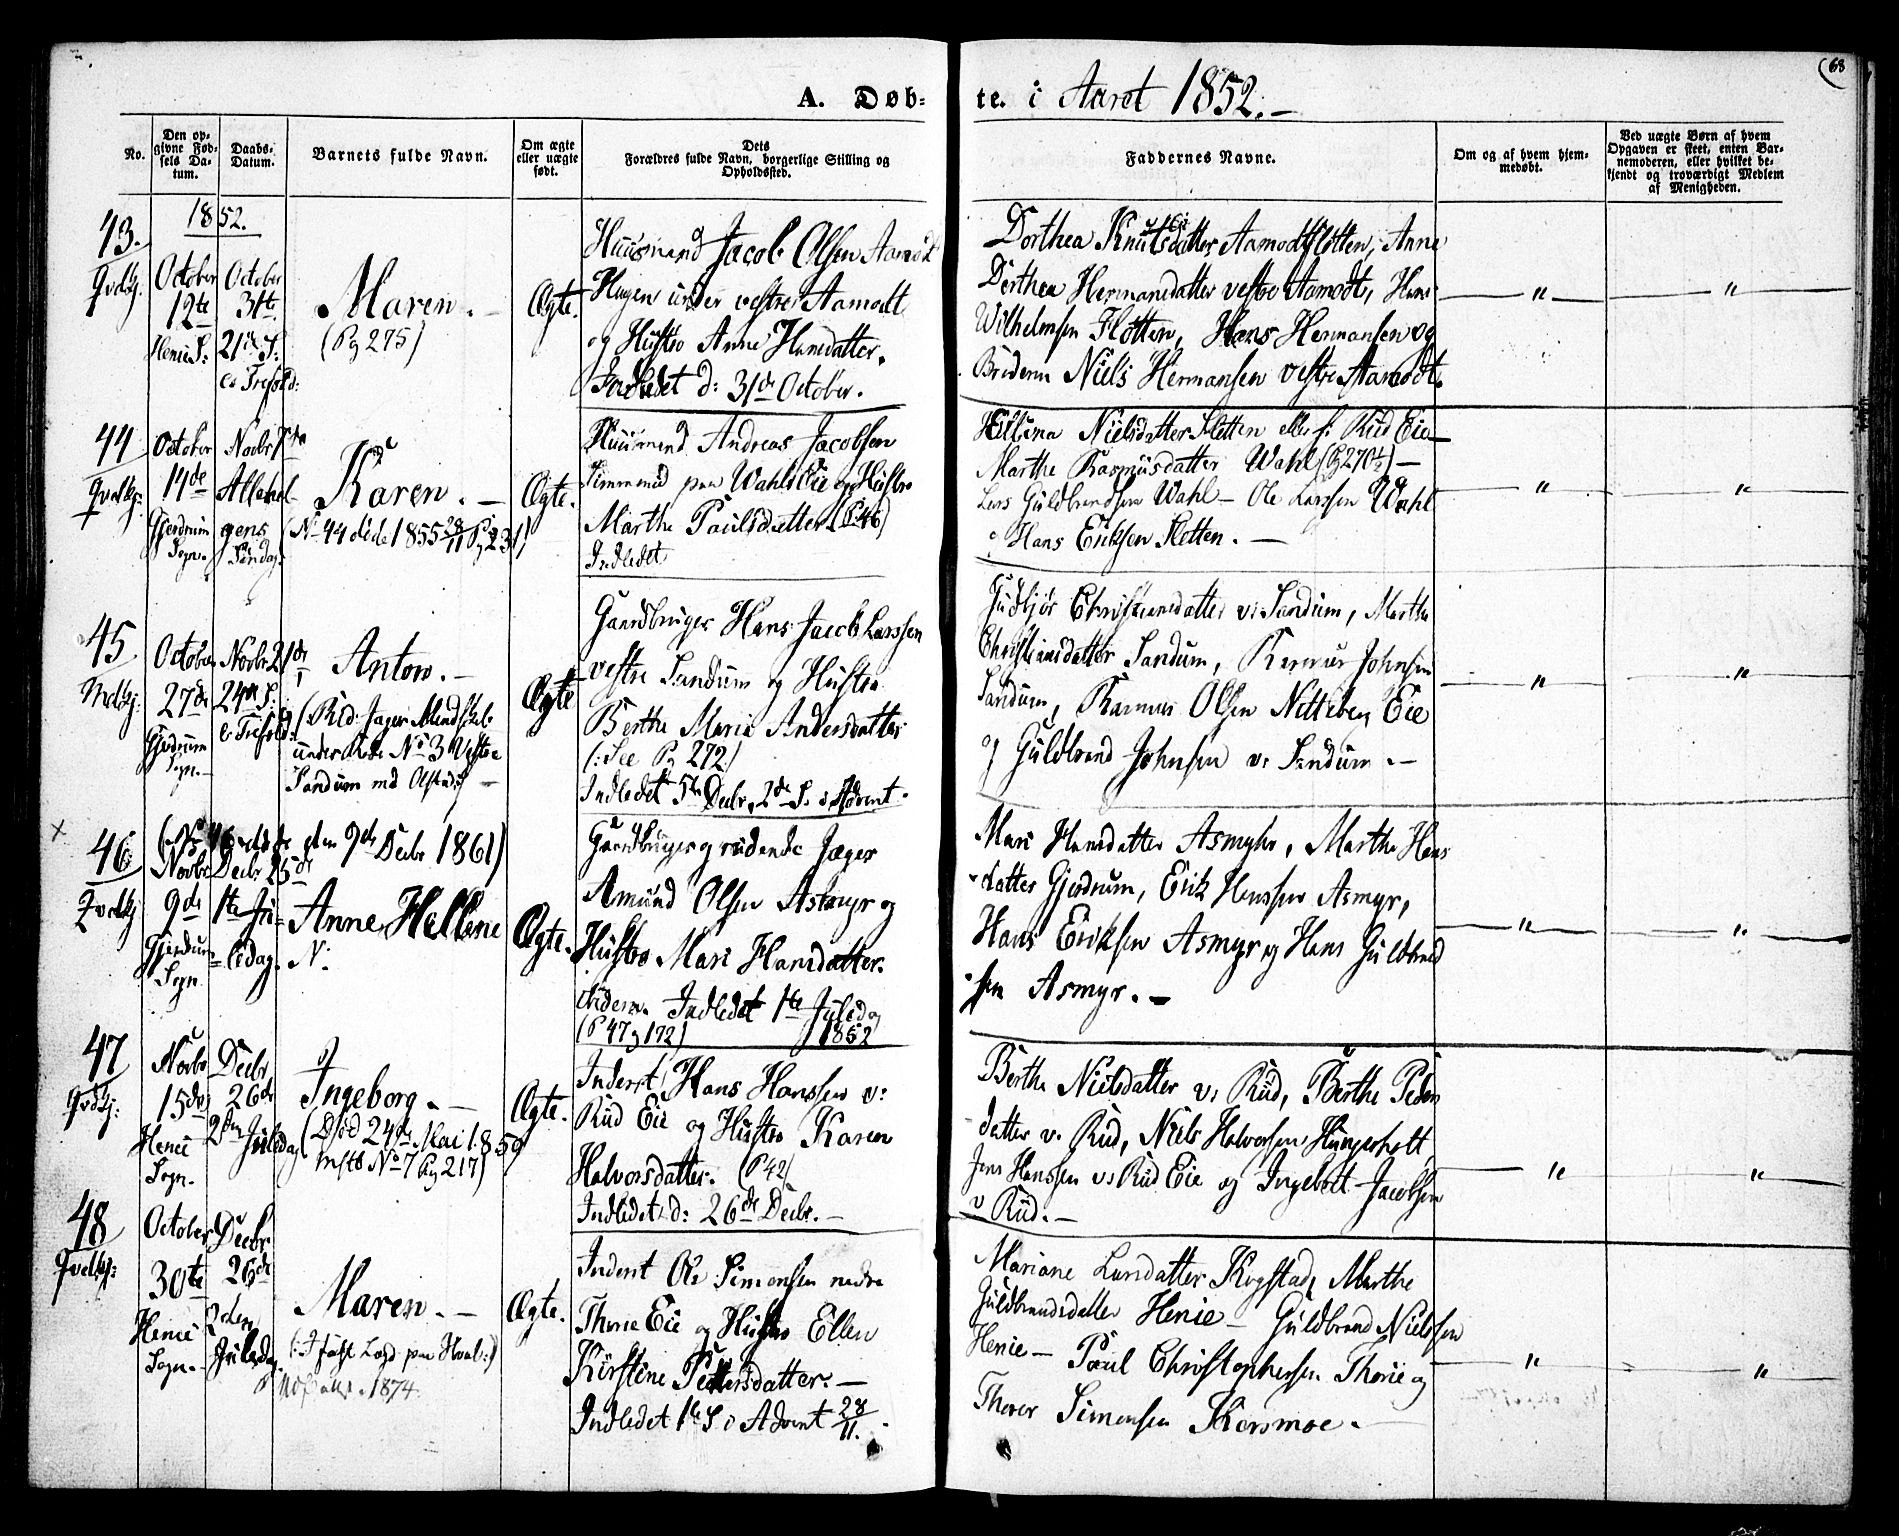 68
A. Døb-
te. i Aaret 1852.
No.
Den op-
givne Fød-
sels Da-
tum.
Daabs-
Datum.
Barnets fulde Navn.
Om ægte
eller uægte
født.
Dets
Forældres fulde Navn, borgerlige Stilling og
Opholdssted.
Faddernes Navne.
Om og af hvem hjem-
medøbt.
Ved uægte Børn af hvem
Opgaven er skeet, enten Bar-
nemoderen, eller hvilket be-
kjendt og troværdigt Medlem
af Menigheden.
1852.
43.
October
12te
October
31te
21de S:
e. Trefold:
Maren. —
(Pg 275)
Ægte.
Huusmand Jacob Olsen Aamodt
Hagen under vestre Aamodt
og Hustro Anne Hansdatter.
Indledet d: 31de October.
Dorthea Knutsdatter Aamodtflotten, Anne
Dorthea Hermansdatter vestre Aamodt, Hans
Wilhelmsen Flotten, Hans Hermansen og
Broderen Niels Hermansen vestre Aamodt.
— " —
— " —
44
October
17de
Gjerdrum
Sogn.
Novbr 7de
Allehel-
gens
Søndag.
Karen. —
(No 44 døde 1855 28/11 Pg 231)
Ægte.
Huusmand Andreas Jacobsen
paa Wahls Eie og Hustro
Marthe Paulsdatter (P. 46)
Indledet
Nielsdatter Sletten Rud Eie —
Marthe Rasmusdatter Wahl (Pg 270) —
Lars Guldbrandsen Wahl — Ole Larssen Wahl
og Hans Eriksen Slotten. —
— " —
— " —
45.
October
27de
Gjerdrum
Sogn. —
Novbr. 21de
24de S:
e. Trefold:
Anton. —
under No 3 Vestre
Sandum med
Ægte
Gaardbruger Hans Jacob Larssen
vestre Sandum og Hustro
Berthe Marie Andersdatter
(: See Pg 272)
Indledet 5te Decbr. 2de S. i Advent.
Gudbjør Christiansdatter v: Sandum, Marthe
Christiansdatter Sandum, Rasmus Johnsen
Sandum, Rasmus Olsen Nitteberg Eie
og Guldbrand Johnsen v: Sandum. —
— " —
— " —
x
46
den 9de Decbr 1861)
Novbr
9de
Gjerdrum
Sogn
Decbr. 25de
1te Ju-
ledag.
Anne Hellene
N:
Ægte.
Gaardbruger og ridende Jæger
Amund Olsen Asmyr og
Hustro Mari Hansdatter
Indledet 1te Juledag
(P 47 og 192) 1852
Mari Hansdatter Asmyhr, Marthe Hans
datter Gjerdrum, Erik Hanssen Asmyr,
Hans Eriksen Asmyr og Hans Guldbrand
sen Asmyr. —
— " —
— " —
47
Novbr
15de
Henie
Sogn.
Decbr
26de
2den Juledag
Ingeborg. —
(Død 24de Mai 1859
No 7 Pg 217)
Ægte.
Inderst Hans Hanssen v:
Rud Eie og Hustro Karen
Halvorsdatter. (P 42)
Indledet d: 26de Decbr. —
Berthe Nielsdatter v: Rud, Berthe Peders
datter v. Rud, Niels Halvorsen Hungerholt,
Jens Hanssen v: Rud Eie og Ingebret Jacobsen
v Rud. —
— " —
— " —
48
October
30te
Henie
Sogn.
Decbr
26de
2den
Juledag.
Maren. —
1874.
Ægte.
Inderst Ole Simensen nedre
Thorie Eie og Hustro Ellen
Kirstine Pedersdatter. —
Indledet 1te S. i Advent 28/11.
Mariane Larsdatter Kogstad, Marthe
Guldbrandsdatter Henie — Guldbrand Nielssen
Henie — Paul Christophersen Thorie og
Thorer Simensen Korsmoe.
— " —
— " —